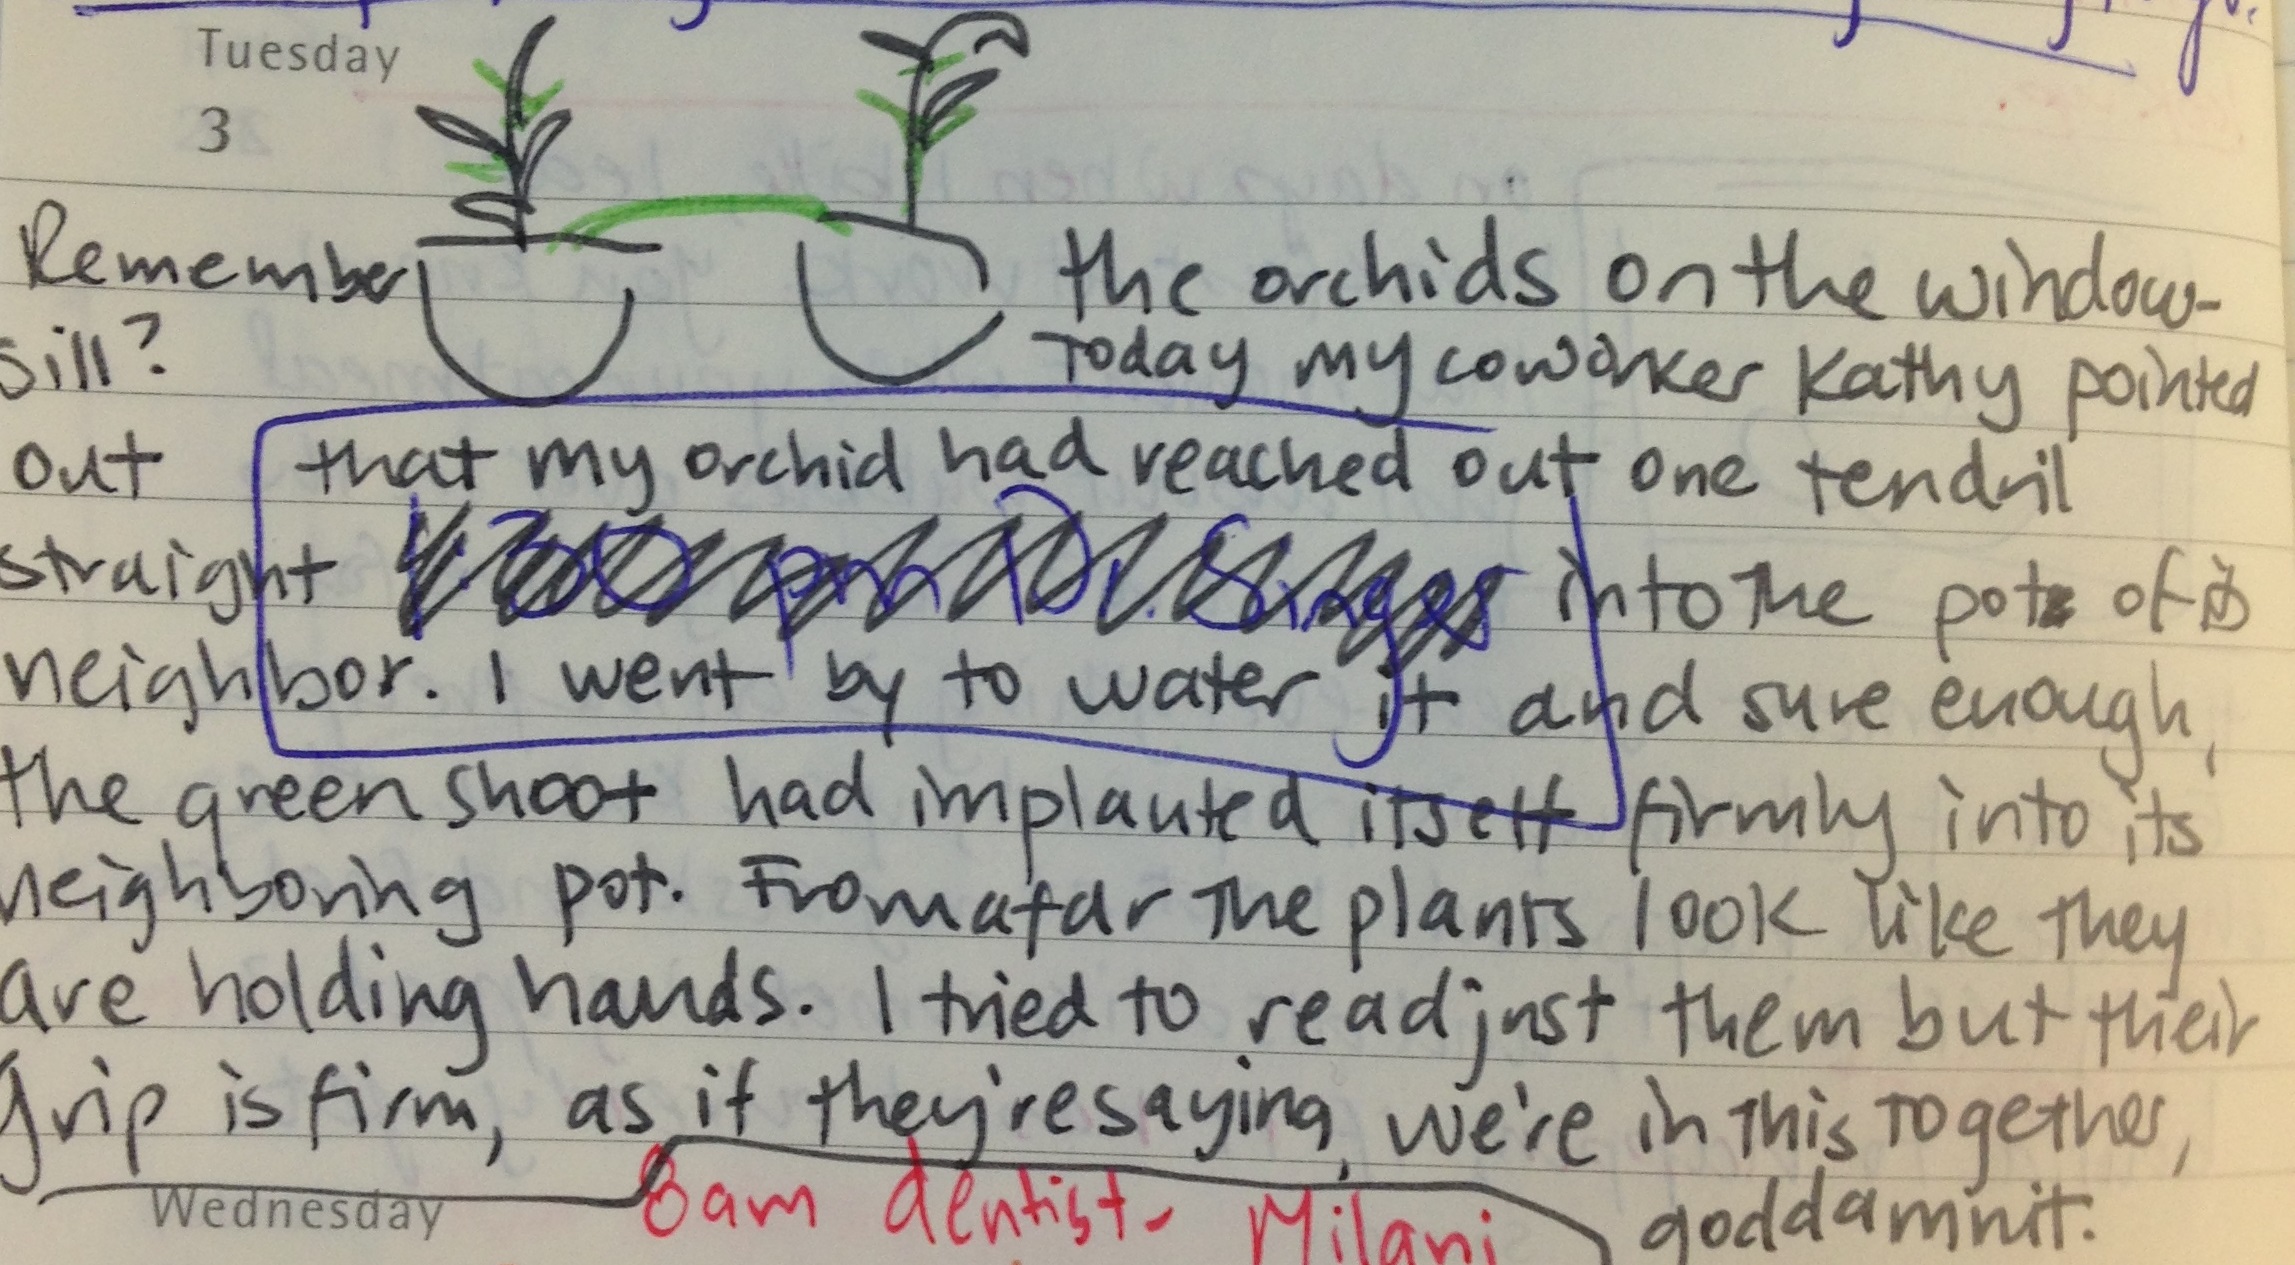 Tuesday
3
Remember the orchids on the window-
sill? Today my coworker Kathy pointed
out that my orchid had reached out one tendril
straight 4:30 pm Dr. Singer into the pot of its
neighbor. I went by to water it and sure enough,
the green shoot had implanted itself firmly into its
neighboring pot. From afar the plants look like they
are holding hands. I tried to readjust them but their
grip is firm, as if they're saying, we're in this together,
goddamnit.
Wednesday 8am dentist - Milani